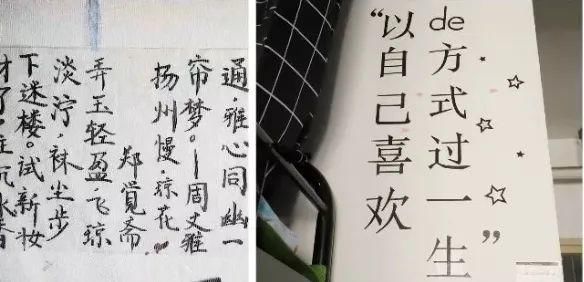 通,雅心同幽一
帘梦。—周文
扬州慢·琼花
郑覺斋
弄玉轻盈,飞琼
淡泞,袜尘步
下迷楼。试新妆
才了,炷沉水香
“以自己喜欢
de方式过一生”